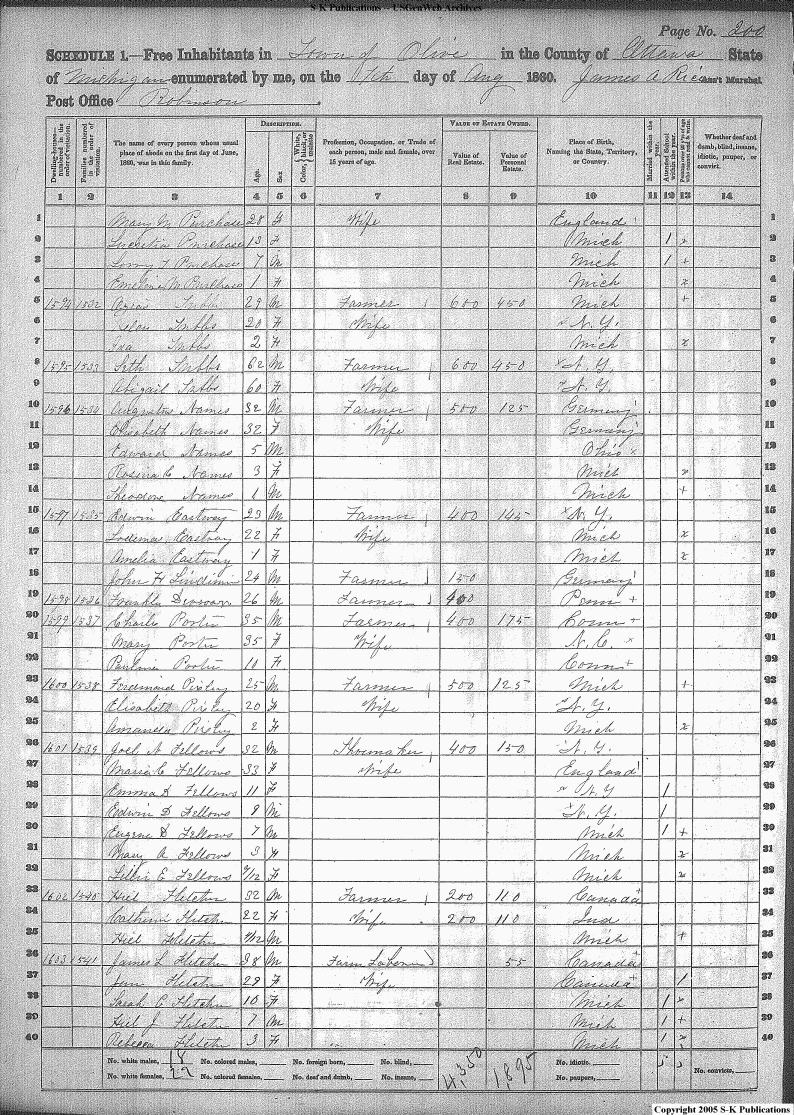 S K Publications - USGenWeb Archives
Page No. 200
SCHEDULE 1.—Free Inhabitants in Town of Olive in the County of Ottawa State
of Michigan enumerated by me, on the 7th day of Aug 1860. James A Rice Ass't Marshal.
Post Office Robinson.
Dwelling-houses—numbered in the order of visitation.
Families numbered in the order of visitation.
The name of every person whose usual place of abode on the first day of June, 1860, was in this family.
DESCRIPTION.
Age.
Sex
Color, White, black, or mulatto
Profession, Occupation, or Trade of each person, male and female, over 15 years of age.
VALUE OF ESTATE OWNED.
Value of Real Estate.
Value of Personal Estate.
Place of Birth, Naming the State, Territory, or Country.
Married within the year.
Attended School within the year.
Persons over 20 y'rs of age who cannot read & write.
Whether deaf and dumb, blind, insane, idiotic, pauper, or convict.
1 2 3 4 5 6 7 8 9 10 11 12 13 14
1 Mary M Purchase 28 f Wife England 1
2 Lucretia Purchase 13 f Mich 1 2
3 Purchase 7 m Mich 1 3
4 Emeline M Purchase 1 f Mich 4
5 1594 1532 29 m Farmer 600 450 Mich 5
6 20 f Wife N.Y. 6
7 Ida 2 f Mich 7
8 1595 1533 Seth 62 m Farmer 600 450 N.Y. 8
9 Abigail 60 f Wife N.Y. 9
10 1596 1534 Augustus Names 32 m Farmer 500 125 Germany 10
11 Elisabeth Names 32 f Wife Germany 11
12 Edward Names 5 m Ohio 12
13 Rosena C Names 3 f Mich 13
14 Theodore Names 1 m Mich 14
15 1597 1535 Edwin Eastway 23 m Farmer 400 145 N.Y. 15
16 Eastway 22 f Wife Mich 16
17 Amelia Eastway 1 f Mich 17
18 John H 24 m Farmer 150 Germany 18
19 1598 1536 Franklin 26 m Farmer 400 Penn 19
20 1599 1537 Charles Porter 35 m Farmer 400 175 Conn 20
21 Mary Porter 35 f Wife N.C. 21
22 Porter 10 f Conn 22
23 1600 1538 Pixley 25 m Farmer 500 125 Mich 23
24 Elisabeth Pixley 20 f Wife N.Y. 24
25 Amanda Pixley 2 f Mich 25
26 1601 1539 Joel N Fellows 32 m Shoemaker 400 150 N.Y. 26
27 Maria C Fellows 33 f Wife England 27
28 Emma D Fellows 11 f N.Y 1 28
29 Edwin D Fellows 9 m N.Y. 1 29
30 Eugene D Fellows 7 m Mich 1 30
31 Mary A Fellows 3 f Mich 31
32 Lillie E Fellows /12 f Mich 32
33 1602 1540 Hiel Fletcher 32 m Farmer 200 110 Canada 33
34 Catherine Fletcher 22 f Wife 200 110 Ind 34
35 Hiel Fletcher /12 m Mich 35
36 1603 1541 James L Fletcher 38 m Farm Laborer 55 Canada 36
37 Jane Fletcher 29 f Wife Canada 1 37
38 Sarah C Fletcher 10 f Mich 1 38
39 Hiel J Fletcher 7 m Mich 1 39
40 Rebecca Fletcher 3 f Mich 40
No. white males, 18 No. colored males, No. foreign born, No. blind, 4,350 1,895 No. idiotic,
No. white females, 22 No. colored females, No. deaf and dumb, No. insane, No. paupers, No. convicts,
Copyright 2005 S-K Publications